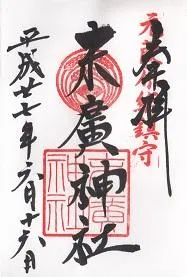 奉拝
元 鎮守
末廣神社
末廣神社
平成廿七年六月十六日